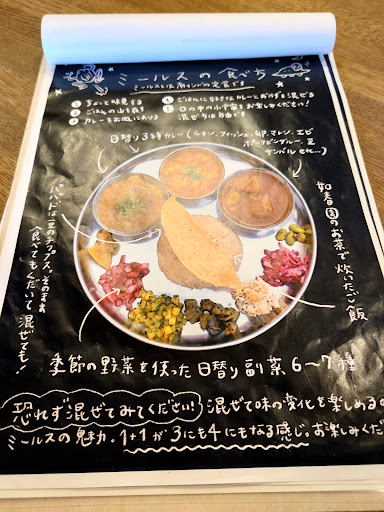 ミールスの食べ方
ミールスとは南インドの定食です
① ちょっと味見する
② ごはんの山を崩す
③ カレーをお皿にあける
④ ごはんに好きなカレーとおかずを混ぜる
⑤ 口の中の小宇宙をお楽しみください!
混ぜ方は自由です
日替り3種カレー(チキン、フィッシュ、卵、マトン、エビ
ポークビンダルー、豆
サンバル etc...)
パパドは豆のチップス。そのまま
食べてもくだいて混ぜても!
如春園のお茶で炊いたご飯
季節の野菜を使った日替り副菜6〜7種
恐れず混ぜてみてください!混ぜて味の変化を楽しめるの
ミールスの魅力。1+1が3にも4にもなる感じ。お楽しみくだ